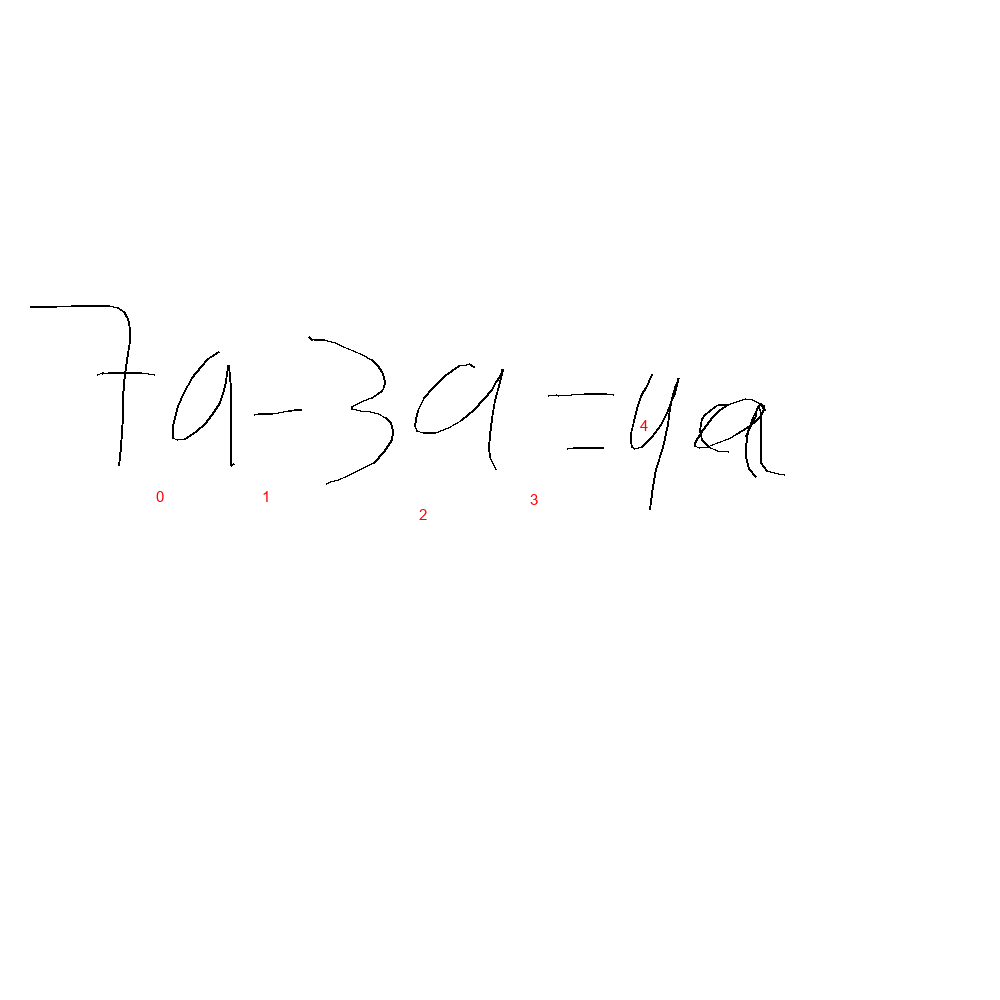 7a-3a=4a
0 1 2 3 4